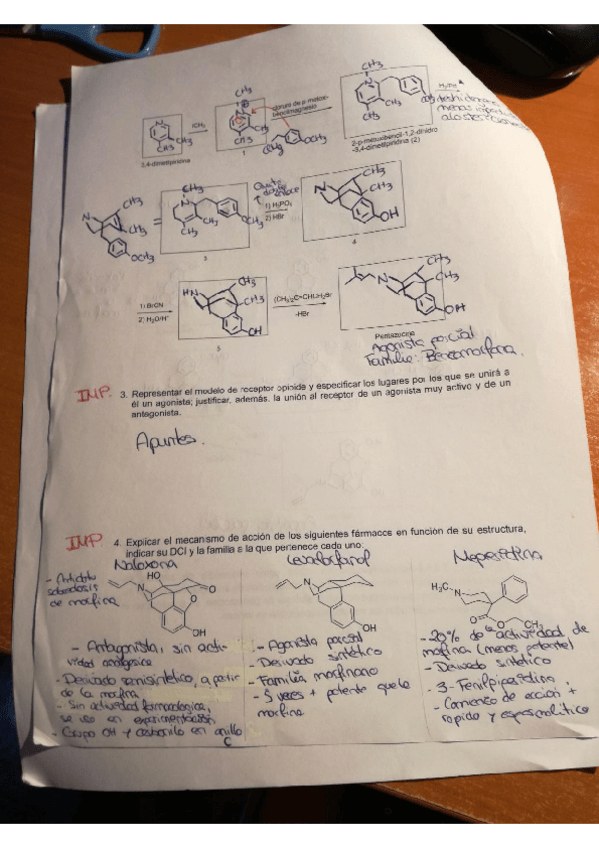 CH3
CH3
CH3
H2/Pd
ICH3
cloruro de p-metoxi-
bencilmagnesio
CH3
deshidro
menos
a los
CH3
CH3
3,4-dimetilpiridina
1
OCH3
2-p-metoxibencil-1,2-dihidro
-3,4-dimetilpiridina (2)
CH3
CH3
OCH3
=
CH3
CH3
CH3
OCH3
3
doble
enlace
1) H3PO4
2) HBr
CH3
CH3
OH
4
1) BrCN
2) H2O/H+
HN
CH3
CH3
OH
5
(CH3)2C=CHCH2Br
-HBr
CH3
CH3
OH
Pentazocina
Agonista parcial
Familia: Benzomorfona.
IMP.
3. Representar el modelo de receptor opioide y especificar los lugares por los que se unirá a
él un agonista; justificar, además, la unión al receptor de un agonista muy activo y de un
antagonista.
Apuntes.
IMP.
4. Explicar el mecanismo de acción de los siguientes fármacos en función de su estructura,
indicar su DCI y la familia a la que pertenece cada uno:
Naloxona
- Antídoto
sobredosis
de morfina
HO
N
O
O
OH
- Antagonista, sin acti-
vidad analgésica
- Derivado semisintético, a partir
de la morfina
- Sin actividad farmacológica,
se usa en experimentación
- Grupo OH y carbonilo en anillo
C
Levalorfanol
N
OH
- Agonista parcial
- Derivado sintético
- Familia morfinano
- 5 veces + potente que la
morfina
Meperidina
H3C
N
O
O
CH3
- 20% de la actividad de
mofina (menos potente)
- Derivado sintético
- 3-Fenilpiperidina
- Comienzo de acción +
rápido y espasmolítico